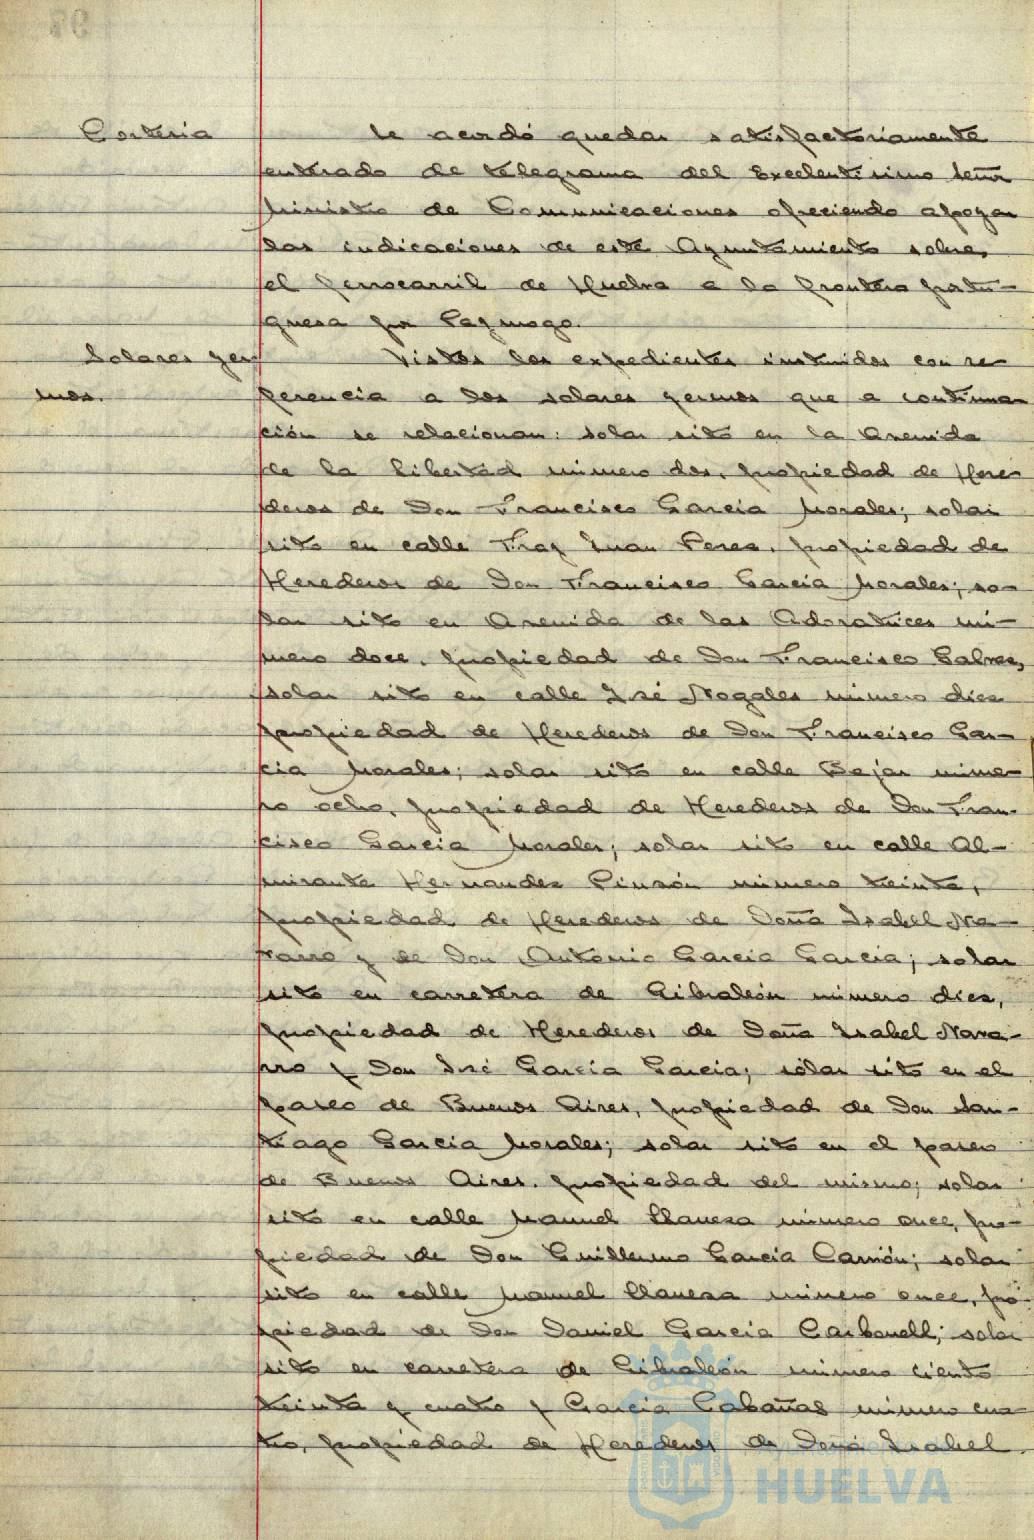 Cortesia
Se acordó quedar satisfactoriamente
enterado de telegrama del Excelentísimo Señor
Ministro de Comunicaciones ofreciendo apoyar
las indicaciones de este Ayuntamiento sobre
el ferrocarril de Huelva a la frontera portu-
guesa por Paymogo.
Solares yer
mos.
Vistos los expedientes instruidos con re-
ferencia a los solares yermos que a continua-
ción se relacionan: solar sito en la Avenida
de la Libertad número dos, propiedad de Here-
deros de Don Francisco García Morales; solar
sito en calle Fray Juan Perez, propiedad de
Herederos de Don Francisco García Morales; so-
lar sito en Avenida de las Adoratrices nú-
mero doce, propiedad de Don Francisco
solar sito en calle José Nogales número diez
propiedad de Herederos de Don Francisco Gar-
cia Morales; solar sito en calle Bejar núme-
ro ocho, propiedad de Herederos de Don Fran-
cisco García Morales; solar sito en calle Al-
mirante Hernandez Pinzón número treinta,
propiedad de Herederos de Doña Isabel Na-
varro y de Don Antonio García García; solar
sito en carretera de Gibraleón número diez,
propiedad de Herederos de Doña Isabel Nava-
rro y Don José García García; solar sito en el
paseo de Buenos Aires, propiedad de Don San-
tiago García Morales; solar sito en el paseo
de Buenos Aires, propiedad del mismo; solar
sito en calle Manuel Llanesa número once, pro-
piedad de Don Guillermo García Carrión; solar
sito en calle Manuel Llanesa número once, pro-
piedad de Don Daniel García Carbonell; solar
sito en carretera de Gibraleón número ciento
treinta y cuatro y García Cabañas número cua-
tro, propiedad de Herederos de Doña Isabel
HUELVA